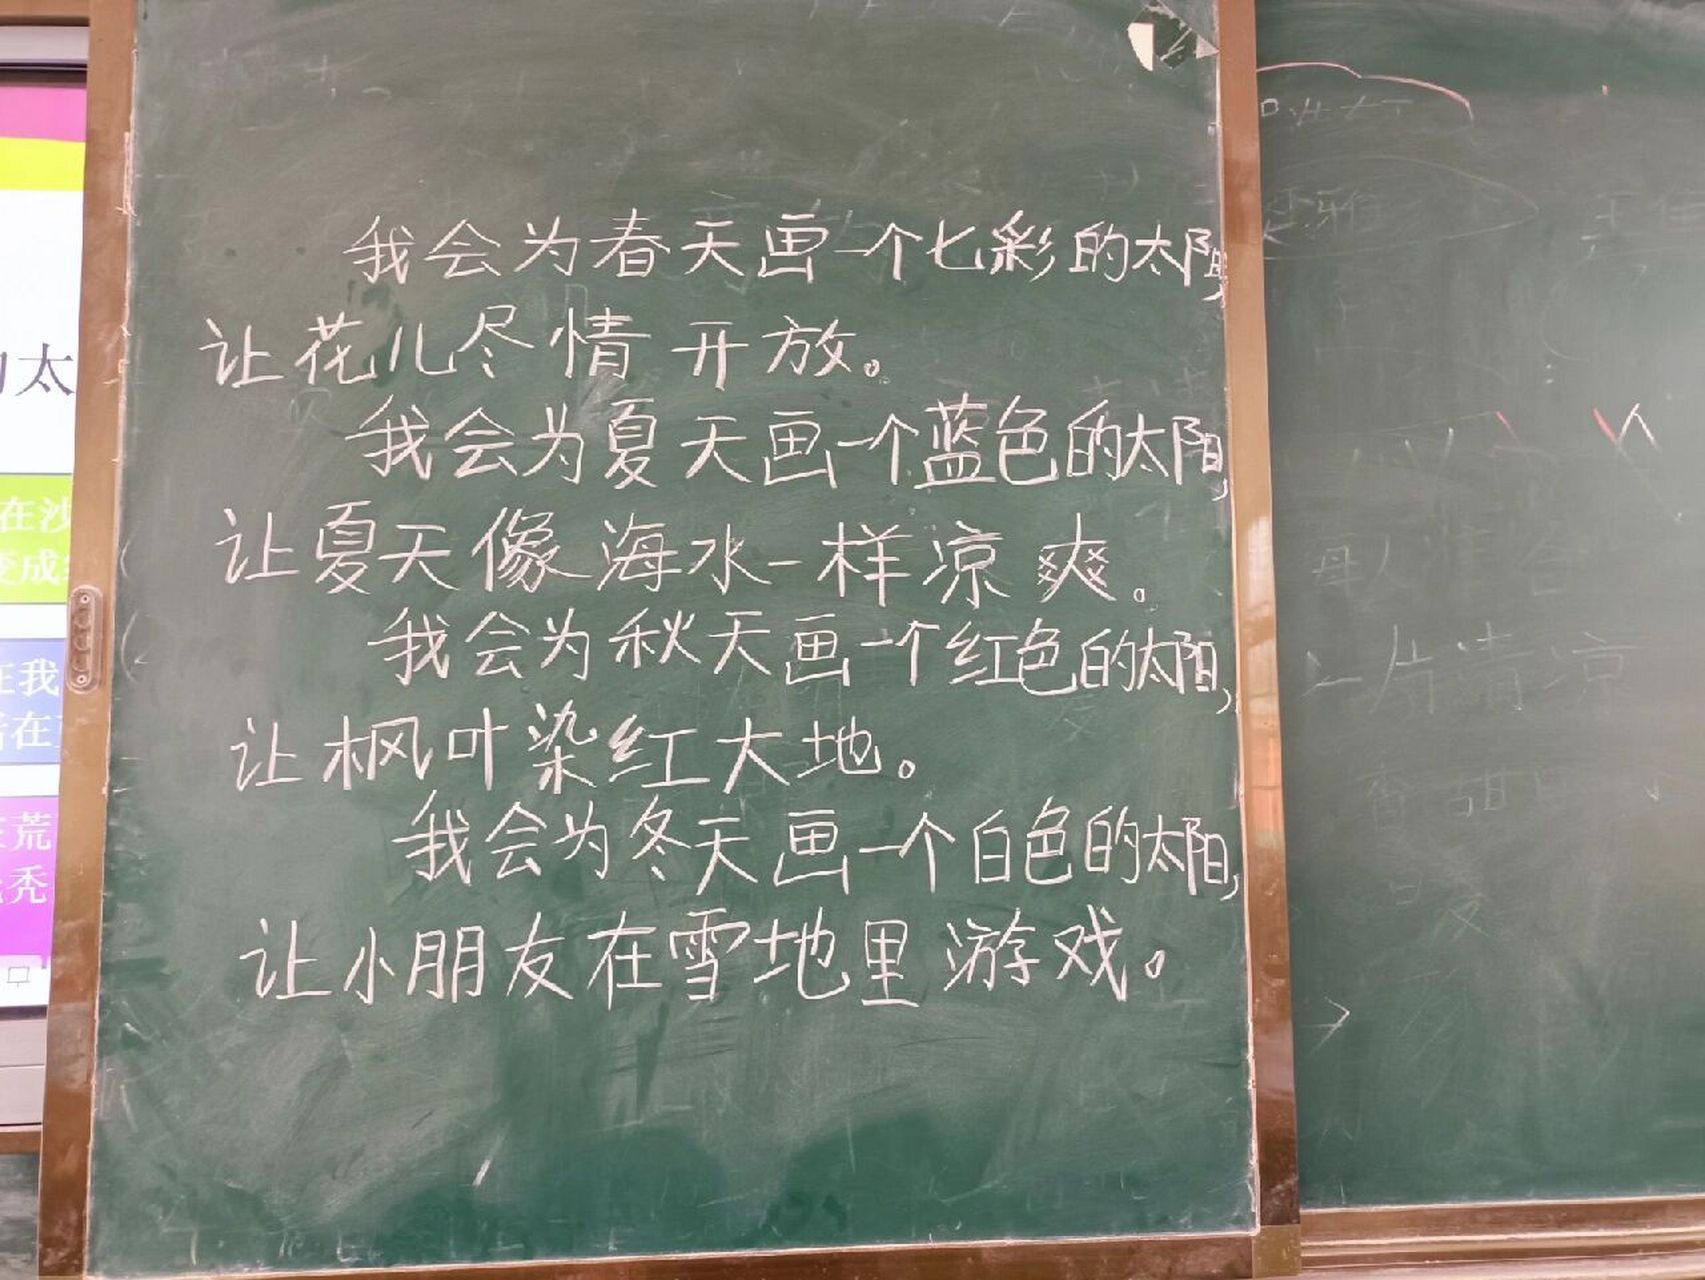 我会为春天画一个七彩的太阳,
让花儿尽情开放。
我会为夏天画一个蓝色的太阳,
让夏天像海水一样凉爽。
我会为秋天画一个红色的太阳,
让枫叶染红大地。
我会为冬天画一个白色的太阳,
让小朋友在雪地里游戏。
太
在沙
变成
在我
在
荒
秃
片清凉